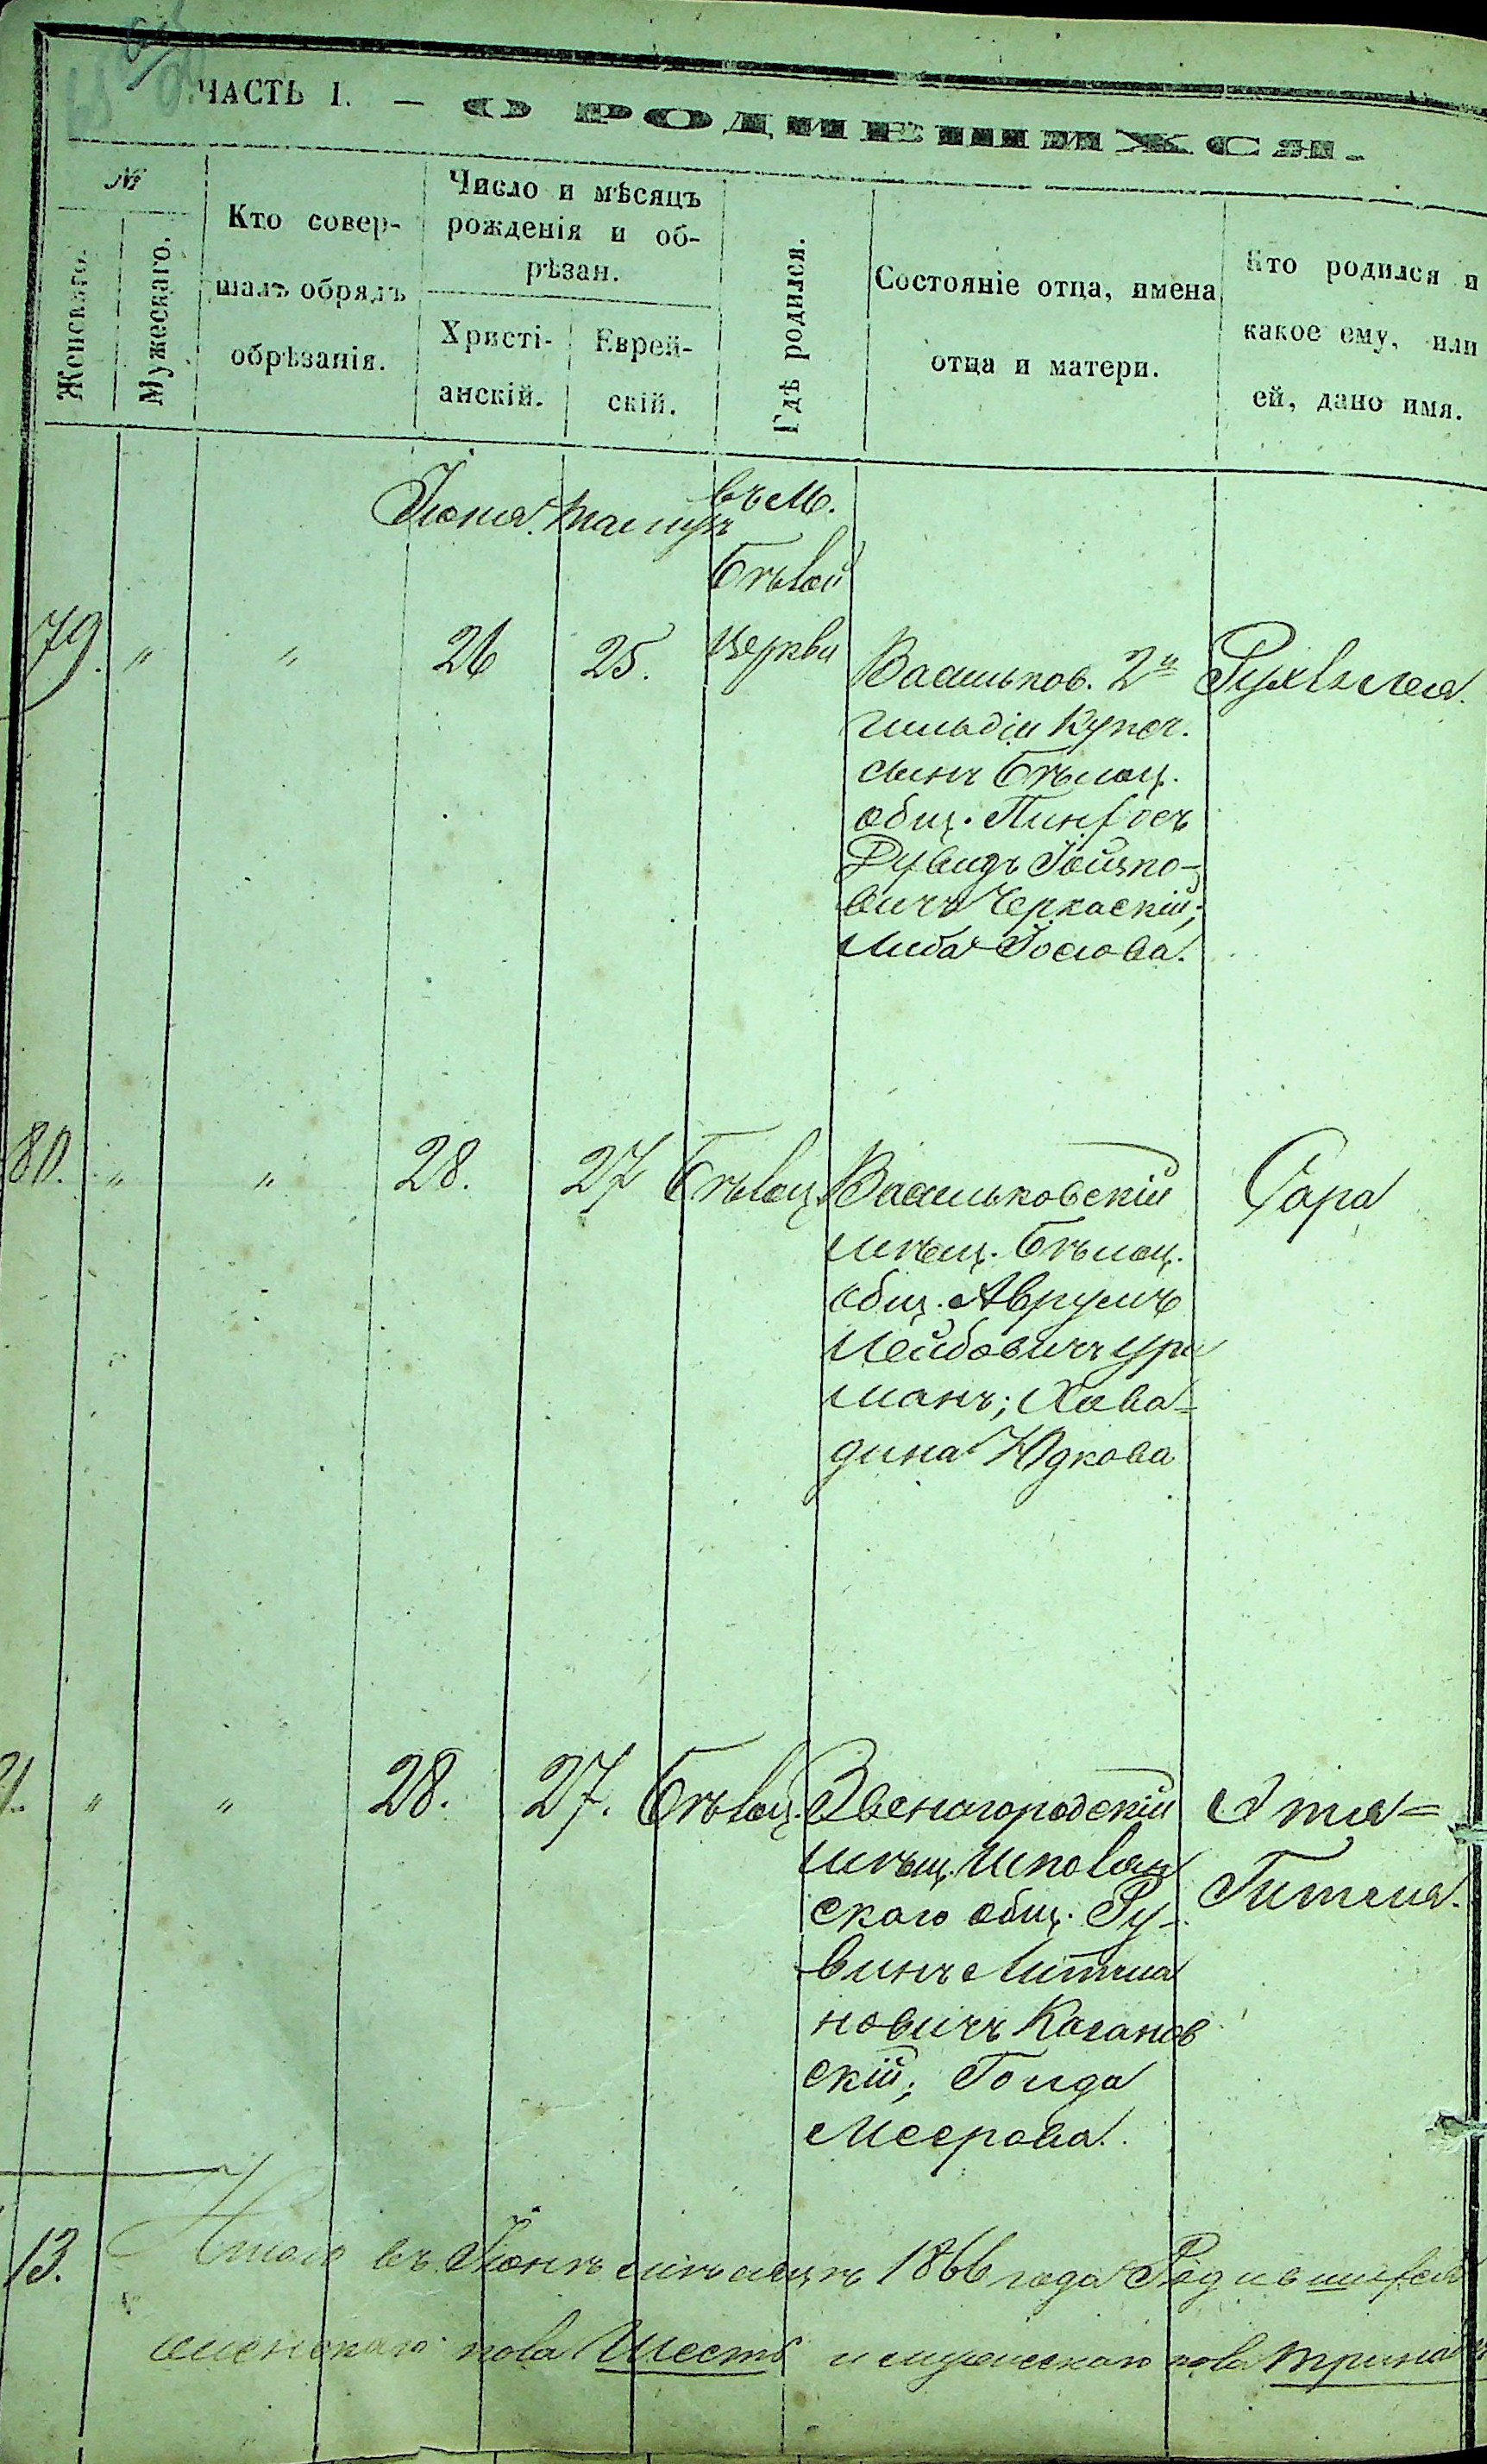 ЧАСТЬ I. — О РОДИВШИХСЯ.
№
Женскаго.
Мужескаго.
Кто совер-
шалъ обрядъ
обрѣзанія.
Число и мѣсяцъ
рожденія и об-
рѣзан.
Христі-
анскій.
Еврей-
скій.
Гдѣ родился.
Состояніе отца, имена
отца и матери.
Кто родился и
какое ему, или
ей, дано имя.
Іюня. Тамузъ
въ М.
Бѣлой
Церкви
79. " " 26 25.
Васильков. 2й
гильдіи Купеч.
сынъ Бѣлоц.
общ. Пинхосъ
Дувидъ Іойзко-
вичъ Черкаскій;
Либа Іосіова.
Рухля
80. " " 28. 27 Бѣлоц.
Васильковскій
мѣщ. Бѣлоц.
общ. Аврумъ
Лейбовичъ Ури
манъ; Хава-
дина Юдкова
Сара
" " 28. 27. Бѣлоц.
Звеногородскій
мѣщ. Шполян
скаго общ. Ру-
винъ Литма
новичъ Каганов
скій; Голда
Меерова.
Этя-
Гитля.
13. Итого въ Іюнѣ мѣсяцѣ 1866 года Родившихся
женскаго пола Шесть и мужескаго пола тринад